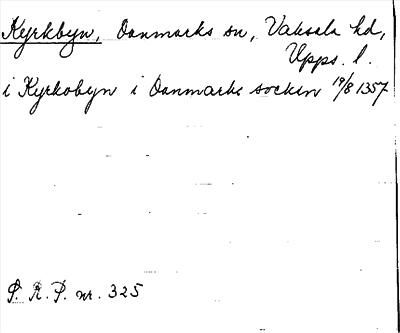 Kyrkbyn, Danmarks sn, Vaksala hd,
Upps. l.
i Kyrkobyn i Danmarks socken 19/8 1357
S. R. P. nr. 325